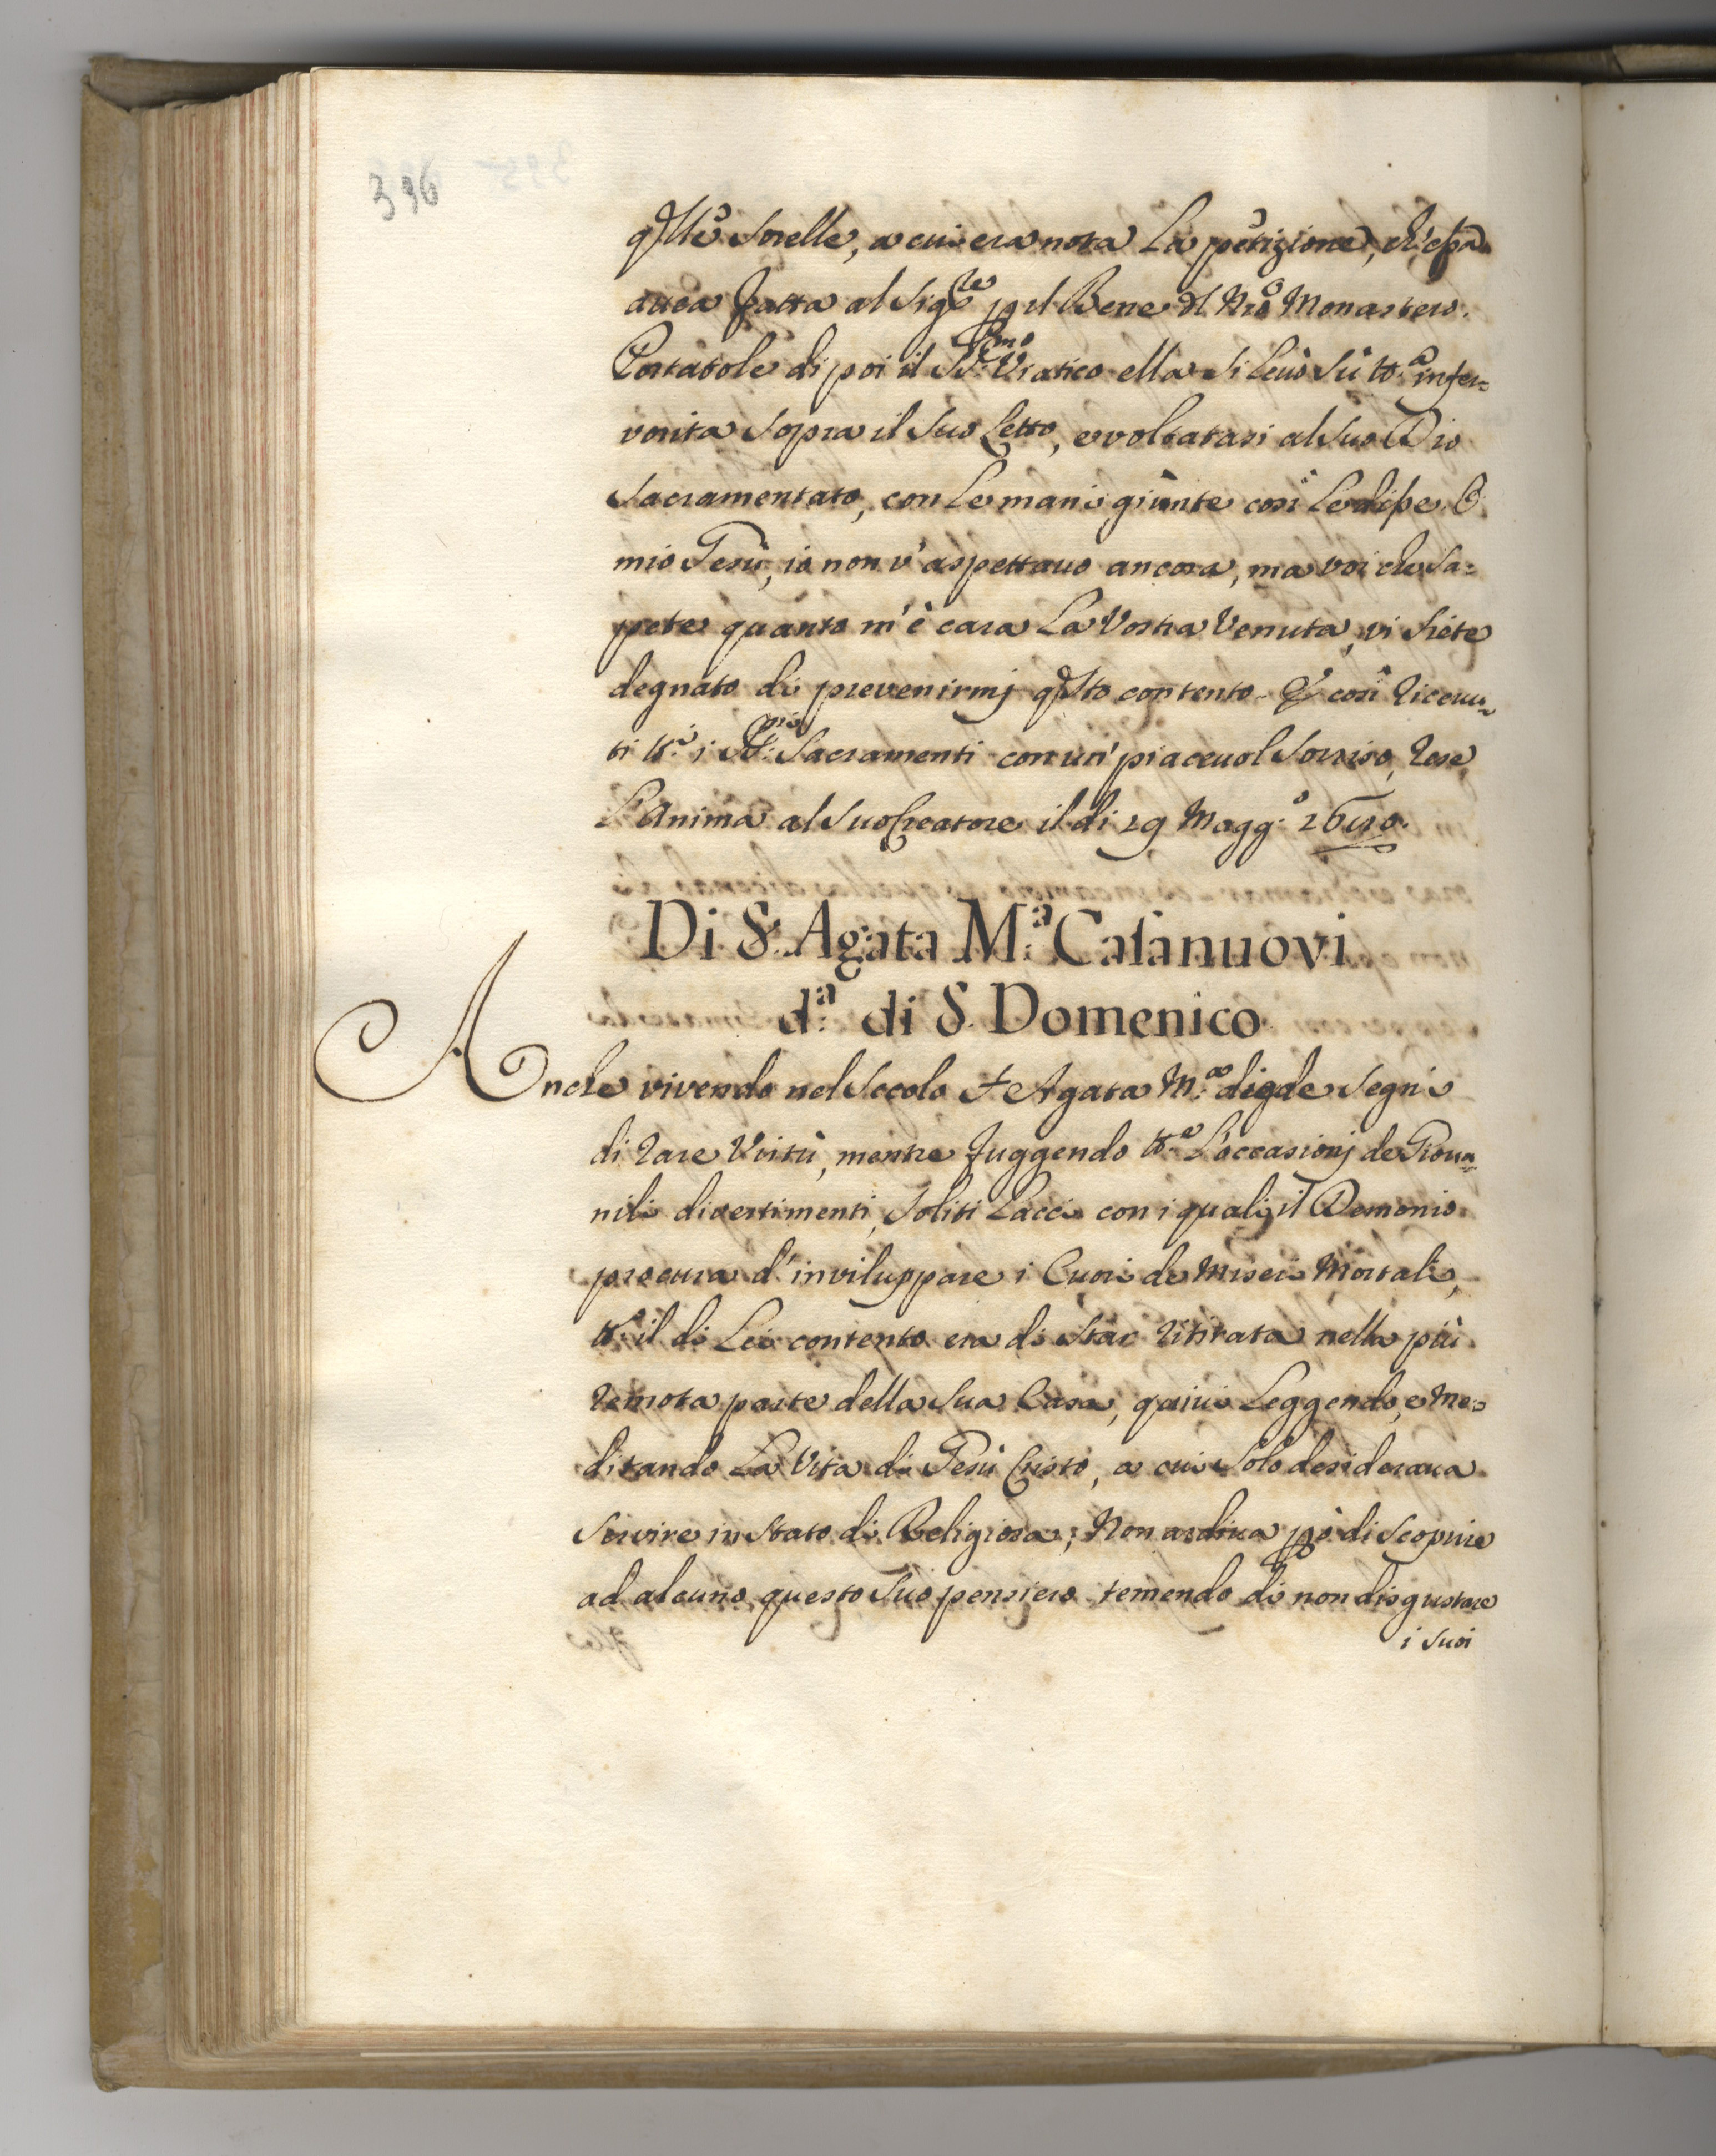 396
q͂lle Sorelle, a cui era nota La petizione, ch'essa
avea fatta al Sig.re p il Bene dl Nrõ Monastero.
Portatole di poi il SS.mo Viatico ella si levò sù tt.a infer=
vorita sopra il suo Letto, e voltatasi al suo Dio
Sacramentato, con Le mani giunte così Le disse O
mio Gesù, io non v'aspettavo ancora, ma voi che sa=
pete quanto m'è cara La Vostra Venuta, vi siete
degnato di prevenirmj q͂sto contento. E così riceuu=
ti tt.i i SS.mi Sacramenti con un' piaceuol Sorriso, rese
L'Anima al Suo Creatore il di 29 Magg.o
Di S.r Agata M.a Casanuovi
d.a di S. Domenico
Anche vivendo nel Secolo S.r Agata M.a diede Segni
di rare Virtù, mentre fuggendo tt.e L'occasionj de Gioua=
nili divertimenti, Soliti Lacci con i quali il Demonio
procura d'inviluppare i Cuori de Miseri Mortali,
tt.o il di Lei contento era di star ritirata nella più
remota parte della Sua Casa, quiui Leggendo, e Me=
ditando La Vita di Gesù Cristo, a cui Solo desideraua
Servire in Stato di Religiosa; Non ardiua pò di Scoprire
ad alcuno questo Suo pensiero temendo di non disgustare
i Suoi